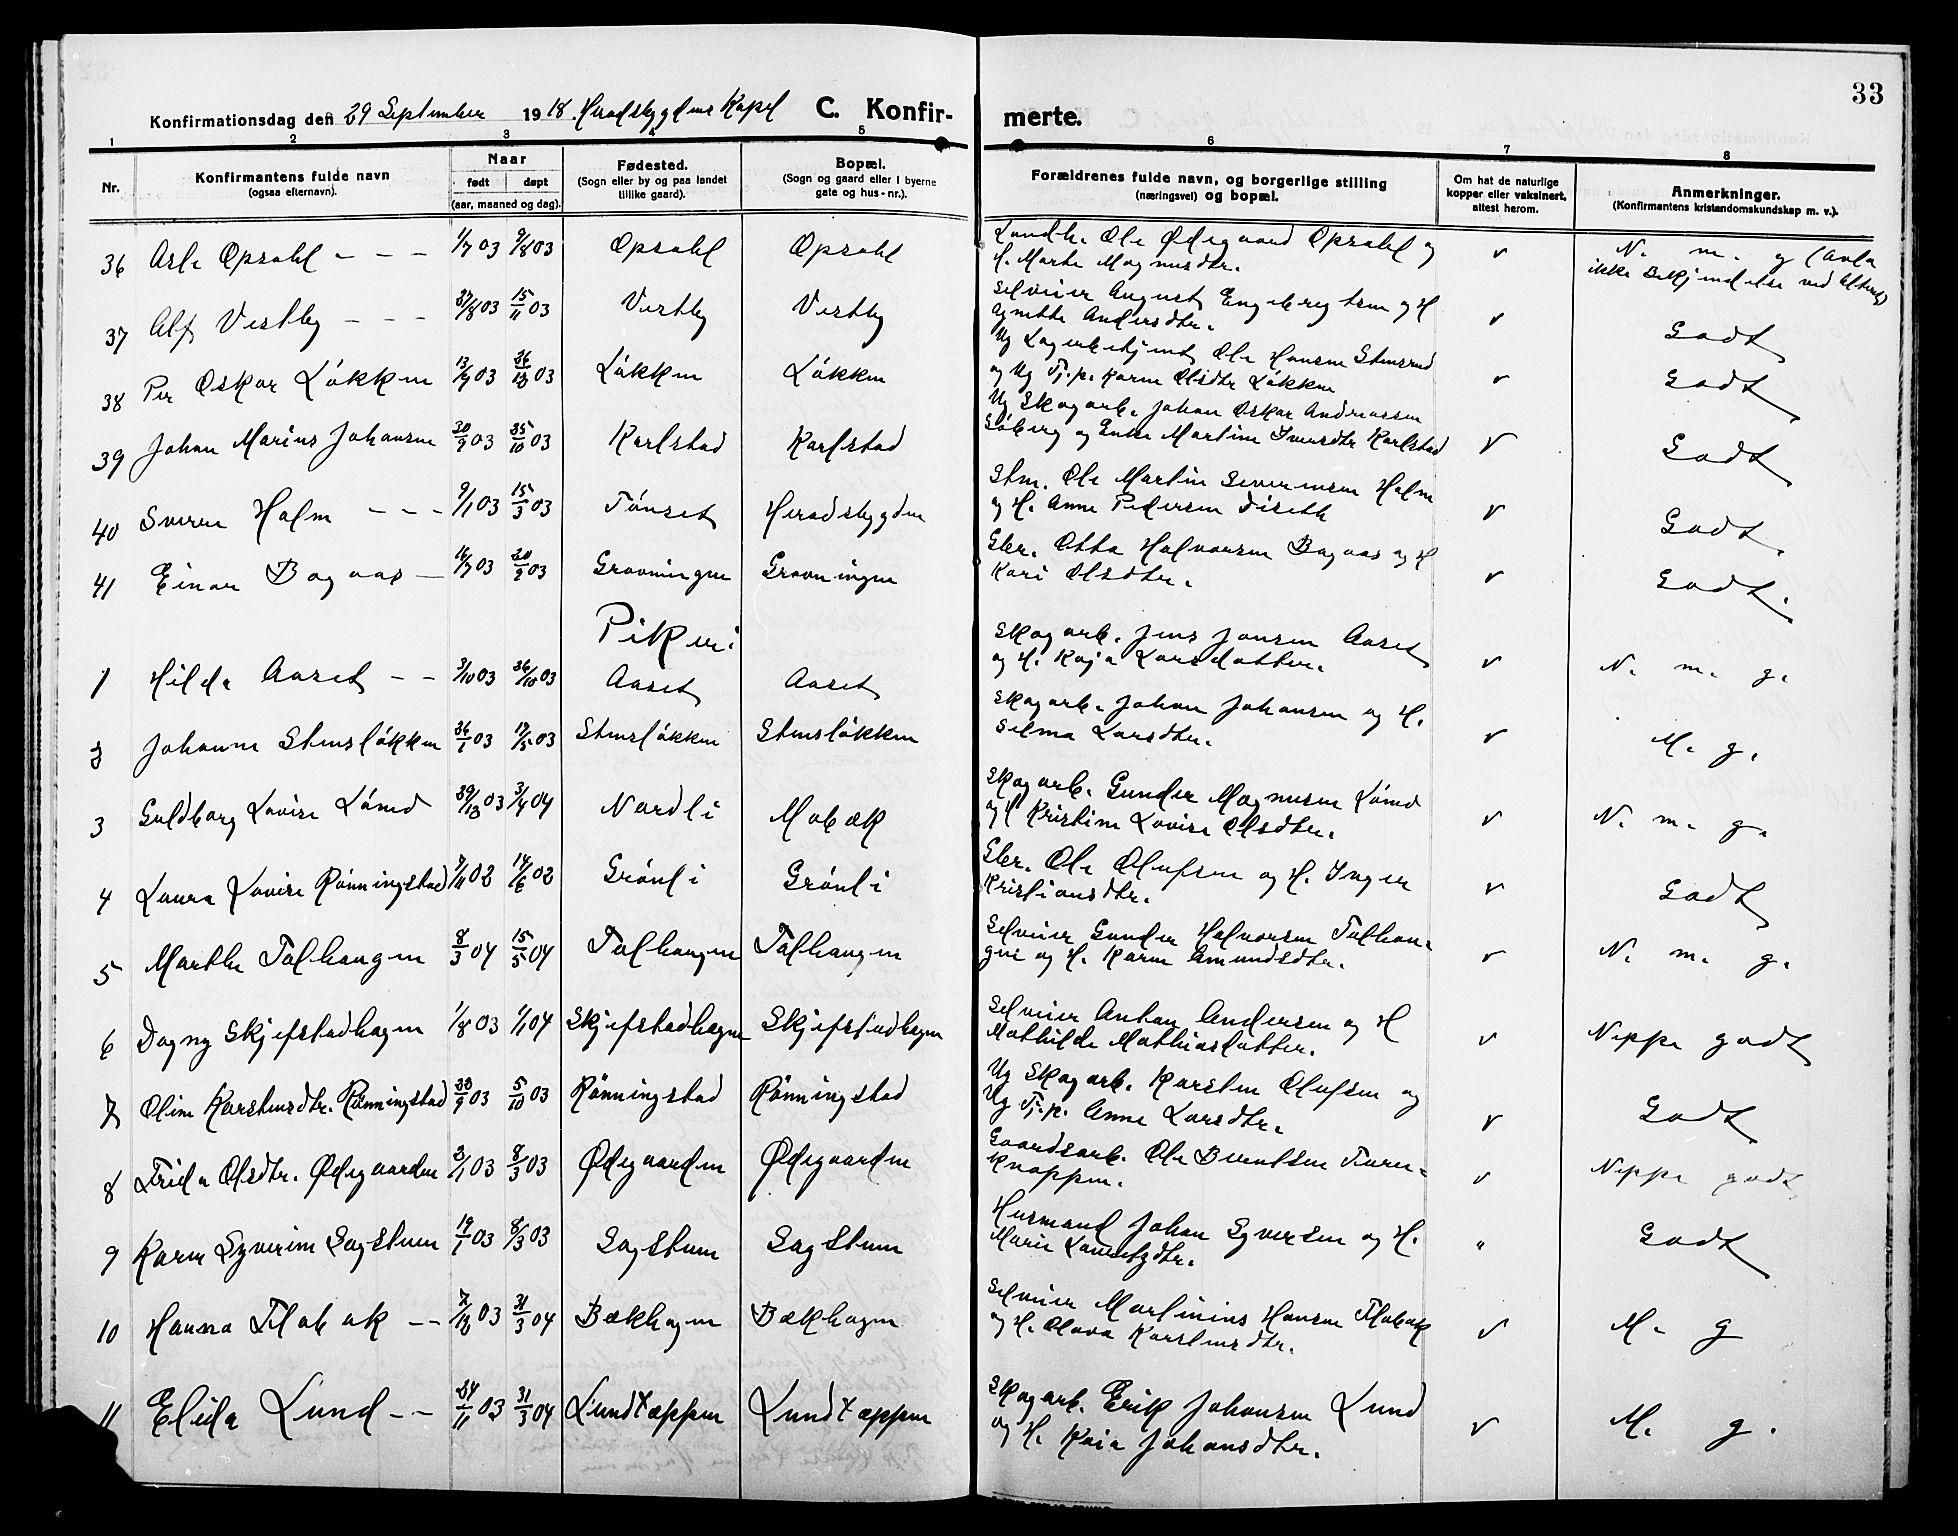 33
Konfirmationsdag den 29 September 1918. Heradsbygdens Kapel C. Konfirmerte.
1 2 3 4 5 6 7 8
Nr. Konfirmantens fulde navn (ogsaa efternavn). Naar født døpt (aar, maaned og dag). Fødested. (Sogn eller by og paa landet tillike gaard). Bopæl. (Sogn og gaard eller i byerne gate og hus-nr.). Forældrenes fulde navn, og borgerlige stilling (næringsvei) og bopæl. Om hat de naturlige kopper eller vaksinert, attest herom. Anmerkninger. (Konfirmantens kristendomskundskap m. v.).
36 Asle Opsahl - - - 1/7 03 9/8 03 Opsahl Opsahl Landh. Ole Ødegaard Opsahl og
H. Marte Magnusdtr. v N. m. g
ikke Bekjendelse ved Alteret)
37 Alf Vestby - - - 27/8 03 15/11 03 Vestby Vestby Selveier August Engebregtsen og H
Agnethe Andersdtr. v Godt
38 Per Oskar Løkken 13/9 03 26/12 03 Løkken Løkken Ug Lagerbetjent Ole Hansen Stensrud
og Ug Tj.p. Karen Olsdtr Løkken v Godt
39 Johan Marius Johansen 20/9 03 25/10 03 Karlstad Karlstad Ug Skogarb. Johan Oskar Andreassen
Søberg og Enke Martine Iversdtr Karlstad v Godt
40 Sverre Holm - - - 9/1 03 15/3 03 Tønset Heradsbygden Stm. Ole Martin Severinsen Holm
og H. Anne Pedersen Diseth v Godt.
41 Einar Bagaas - 16/7 03 20/9 03 Gravningen Gravningen Gbr. Otto Halvorsen Bagaas og H
Kari Olsdtr. v Godt.
Piker:
1 Hilda Aaset - - 3/10 03 26/10 03 Aaset Aaset Skogarb. Jens Jonsen Aaset
og H. Kaja Larsdatter. v N. m. g.
2 Johanne Stensløkken 26/1 03 17/5 03 Stensløkken Stensløkken Skogarb. Johan Johansen og H.
Selma Larsdtr. v M. g.
3 Guldborg Lovise Lømo 29/12 03 3/4 04 Nordli Mobæk Skogarb. Gunder Magnusen Lømo
og H Kristine Lovise Olsdtr. v N. m. g.
4 Laura Lovise Rønningstad 7/4 02 14/6 02 Grønli Grønli Gbr. Ole Olufsen og H. Inger
Kristiansdtr. v Godt
5 Marthe Talhaugen 8/3 04 15/5 04 Talhaugen Talhaugen Selveier Gunder Halvorsen Talhau-
gen og H. Karen Amundsdtr. v N. m. g.
6 Dagny Skjefstadhagen 1/8 03 1/1 04 Skjefstadhagen Skjefstadhagen Selveier Anton Andersen og H
Mathilde Mathiasdatter. v Neppe godt
7 Oline Karstensdtr. Rønningstad 22/9 03 5/10 03 Rønningstad Rønningstad Ug Skogarb. Karsten Olufsen og
Ug Tj.p. Anne Larsdtr. v Godt
8 Frida Olsdtr. Ødegaarden 2/1 03 8/3 03 Ødegaarden Ødegaarden Gaardsarb. Ole Berntsen Fure-
knappen. v Neppe godt
9 Karen Syverine Sagstuen 19/1 03 8/3 03 Sagstuen Sagstuen Husmand Johan Syversen og H.
Marie Lauritzdtr. " Godt
10 Hanna Flobak - - 7/12 03 31/3 04 Bækhagen Bækhagen Selveier Martinius Hansen Flobak
og H. Olava Karstensdtr. v M. g
11 Elida Lund - - 24/11 03 31/3 04 Lundtæppen Lundtæppen Skogarb. Erik Johansen Lund
og H. Kaia Johansdtr. v M. g.